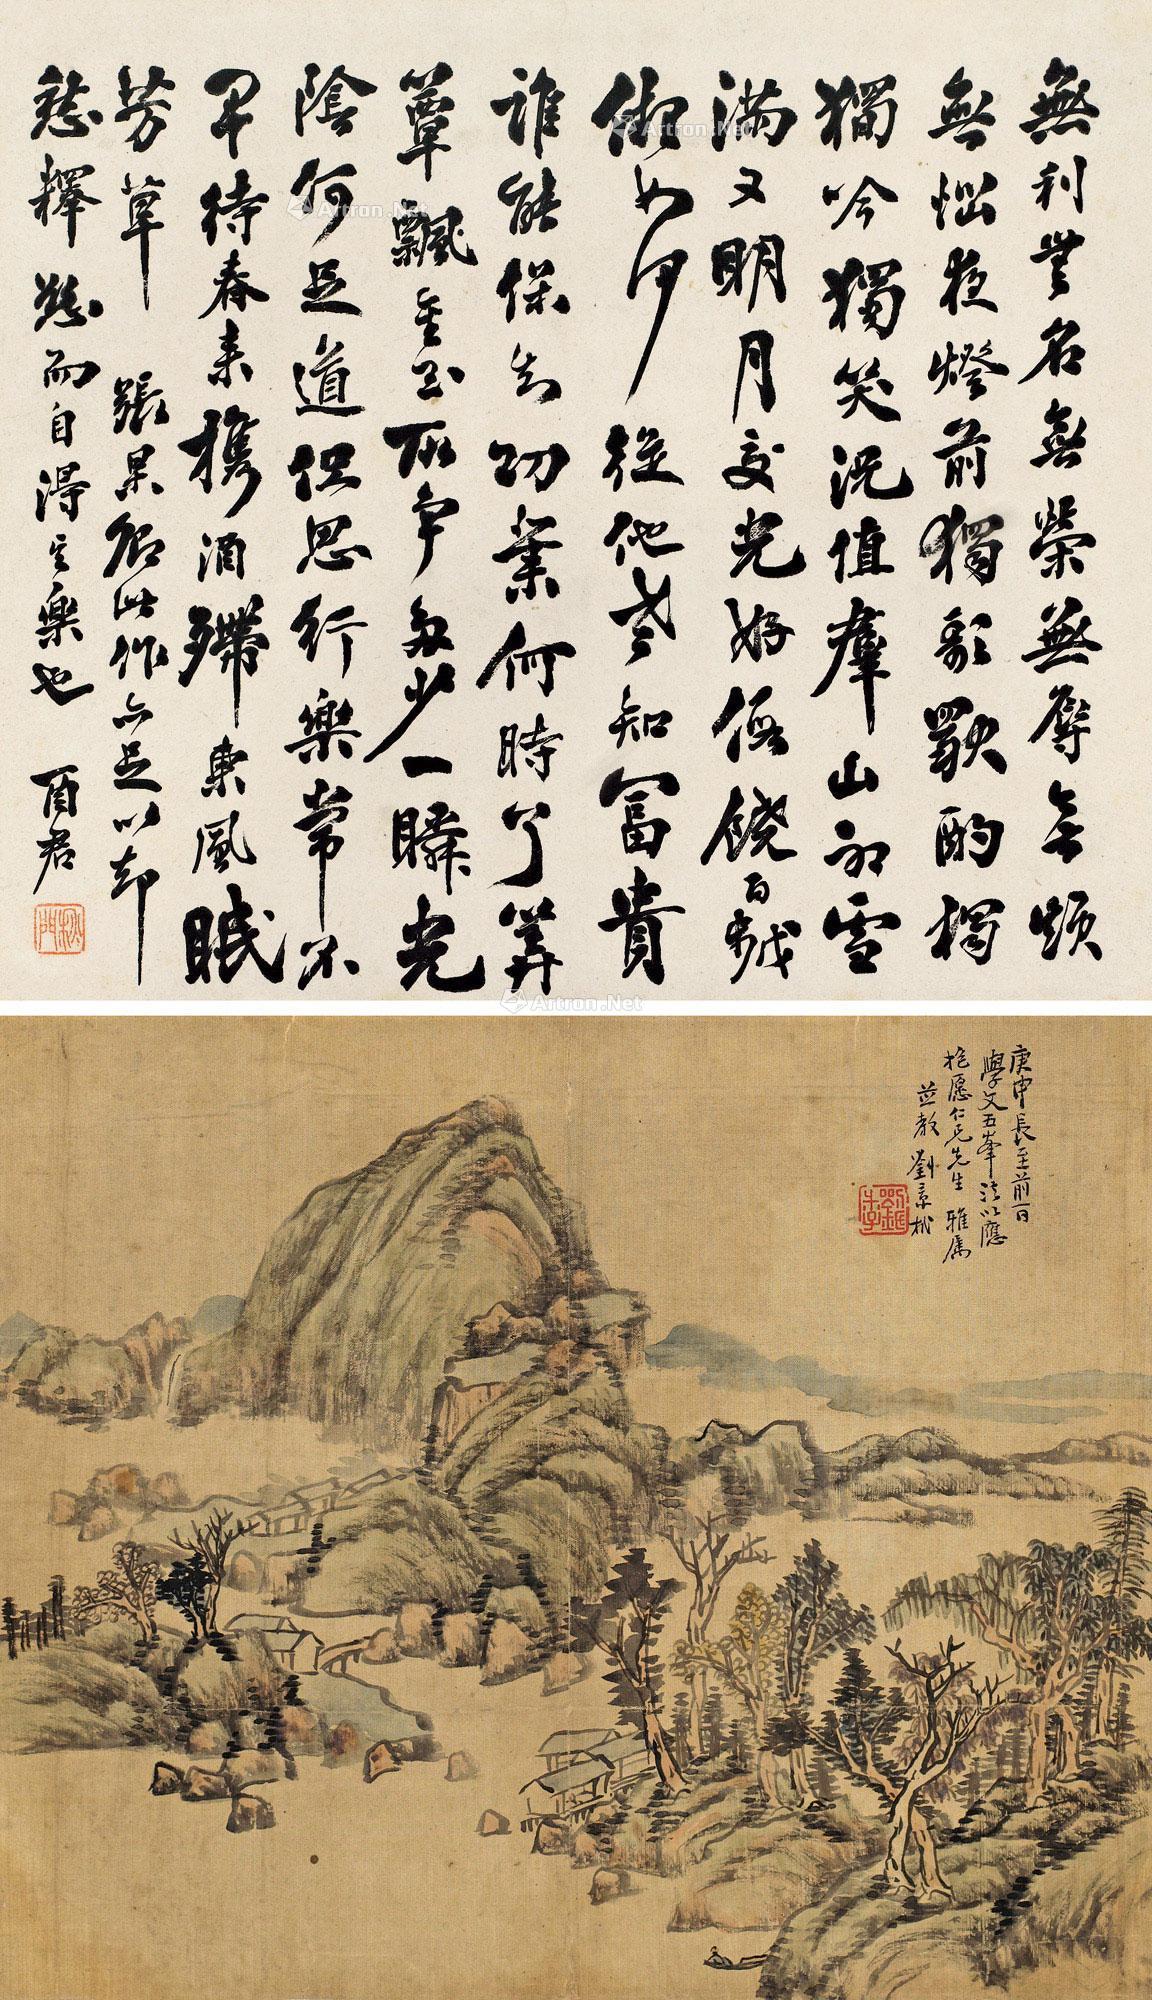 無利無名無榮無辱無煩
無惱夜燈前獨歌酌獨
獨吟獨笑況值羣山初雪
滿又明月交光好假饒百歲
擬如何從他老知富貴
誰能保知功業何時了算
簞瓢金玉所爭多少一瞬光
陰何足道但思行樂常不
早待春來攜酒殢東風眠
芳草 張杲卿此作亦足以却
愁釋而自得之樂也 酉君
秋門
庚申長至前一日
學文五峯法以應
愿仁兄先生雅属
並教 劉景松
Artron.Net
Artron.Net
Artron.Net